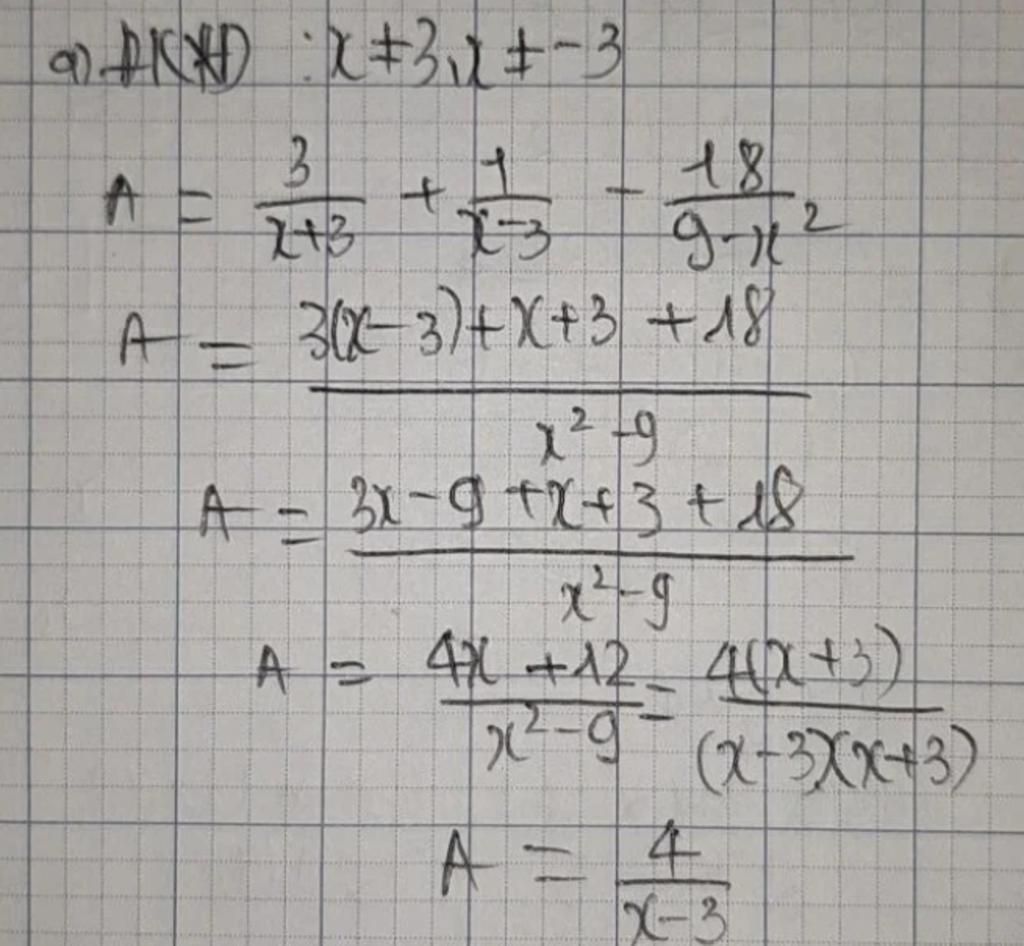 a) ĐKXĐ : x ≠ 3, x ≠ -3
A = 3/(x+3) + 1/(x-3) - 18/(9-x²)
A = (3(x-3)+x+3+18)/(x²-9)
A = (3x-9+x+3+18)/(x²-9)
A = (4x+12)/(x²-9) = 4(x+3)/((x-3)(x+3))
A = 4/(x-3)